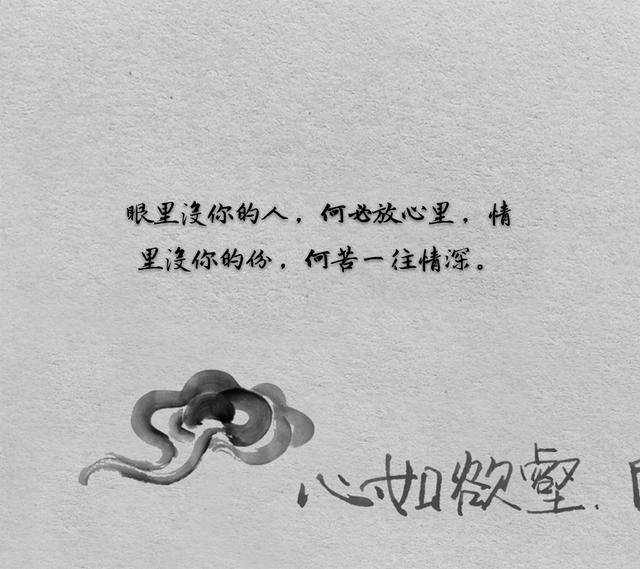 眼里没你的人，何必放心里，情
里没你的份，何苦一往情深。
心如欲壑.